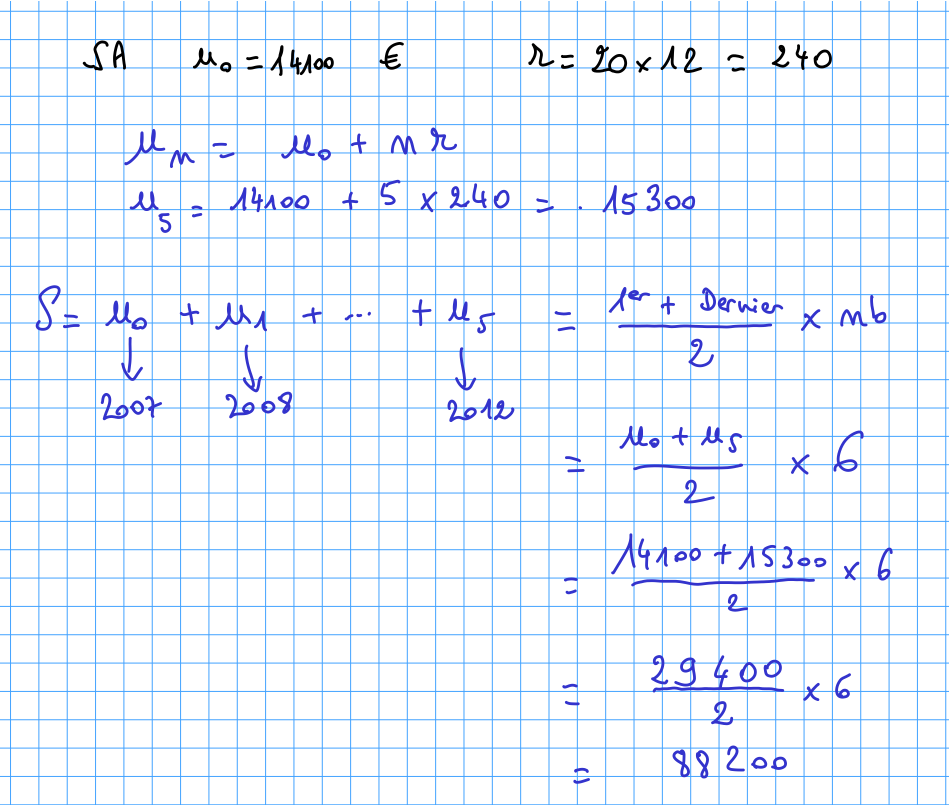 SA u₀ = 14100 € r = 20 × 12 = 240
uₙ = u₀ + n r
u₅ = 14100 + 5 × 240 = . 15300
S = u₀ + u₁ + ... + u₅ = (1er + Dernier)/2 × nb
2007 2008 2012
= (u₀ + u₅)/2 × 6
= (14100 + 15300)/2 × 6
= 29400/2 × 6
= 88200